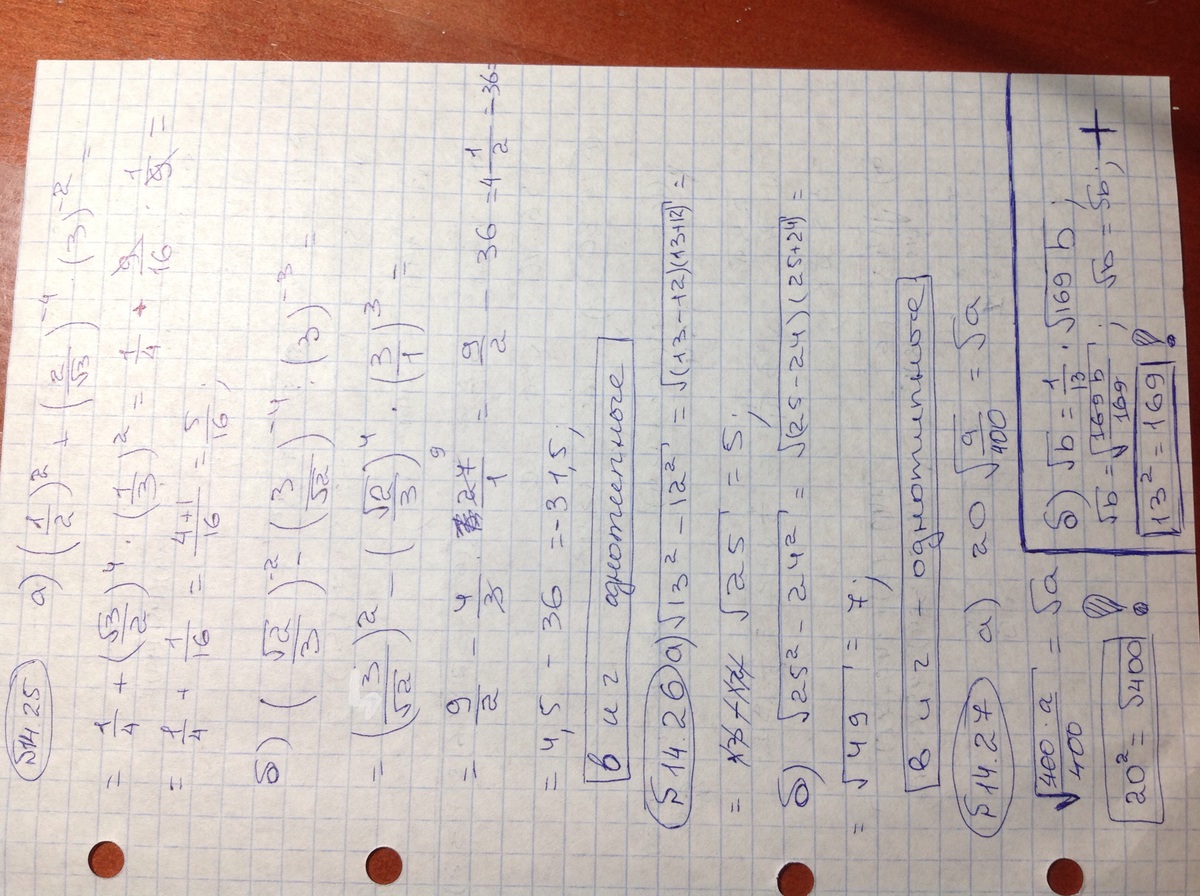 №14.25 а) (1/2)² + (2/√3)⁻⁴ · (3)⁻² =
= 1/4 + (√3/2)⁴ · (1/3)² = 1/4 + 9/16 · 1/9 =
= 1/4 + 1/16 = 4+1/16 = 5/16;
б) (√2/3)⁻² - (3/√2)⁻⁴ : (3)⁻³ =
= (3/√2)² - (√2/3)⁴ · (3/1)³ =
= 9/2 - 4/3 · 27/1 = 9/2 - 36 = 4 1/2 - 36 =
= 4,5 - 36 = -31,5;
в и г однотипные
№14.26 а) √13² - 12² = √(13-12)(13+12) =
= √25 = 5;
б) √25² - 24² = √(25-24)(25+24) =
= √49 = 7;
в и г - однотипные
№14.27 а) 20 √a/400 = √a
√400·a/400 = √a
20² = √400 !
б) √b = 1/13 · √169 b;
√b = √169 b/169; √b = √b; +
13² = 169 !